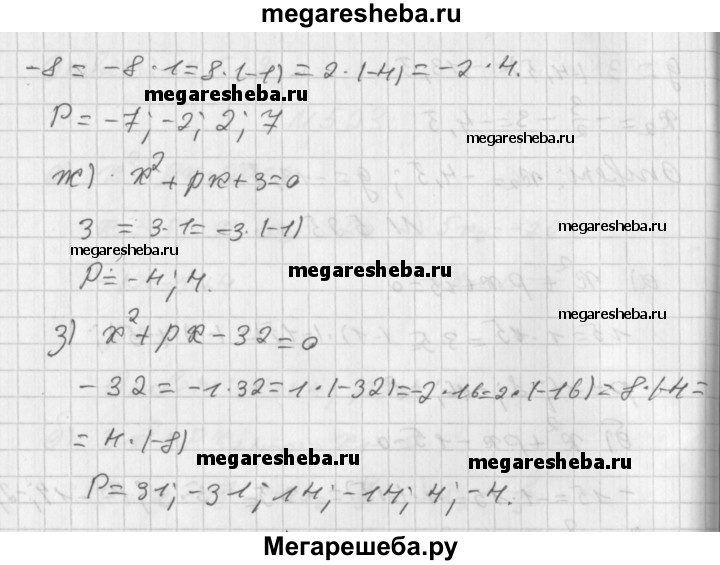 megaresheba.ru
-8 = -8·1=8·(-1)=2·(-4)=-2·4.
megaresheba.ru
P=-7; -2; 2; 7
megaresheba.ru
ж) x²+px+3=0
3 = 3·1=-3·(-1)
megaresheba.ru
megaresheba.ru
megaresheba.ru
P=-4; 4.
megaresheba.ru
з) x²+px-32=0
-32=-1·32=1·(-32)=-2·16=2·(-16)=8·(-4=
=4·(-8)
megaresheba.ru
megaresheba.ru
P=31; -31; 14; -14; 4; -4.
Мегарешеба.ру